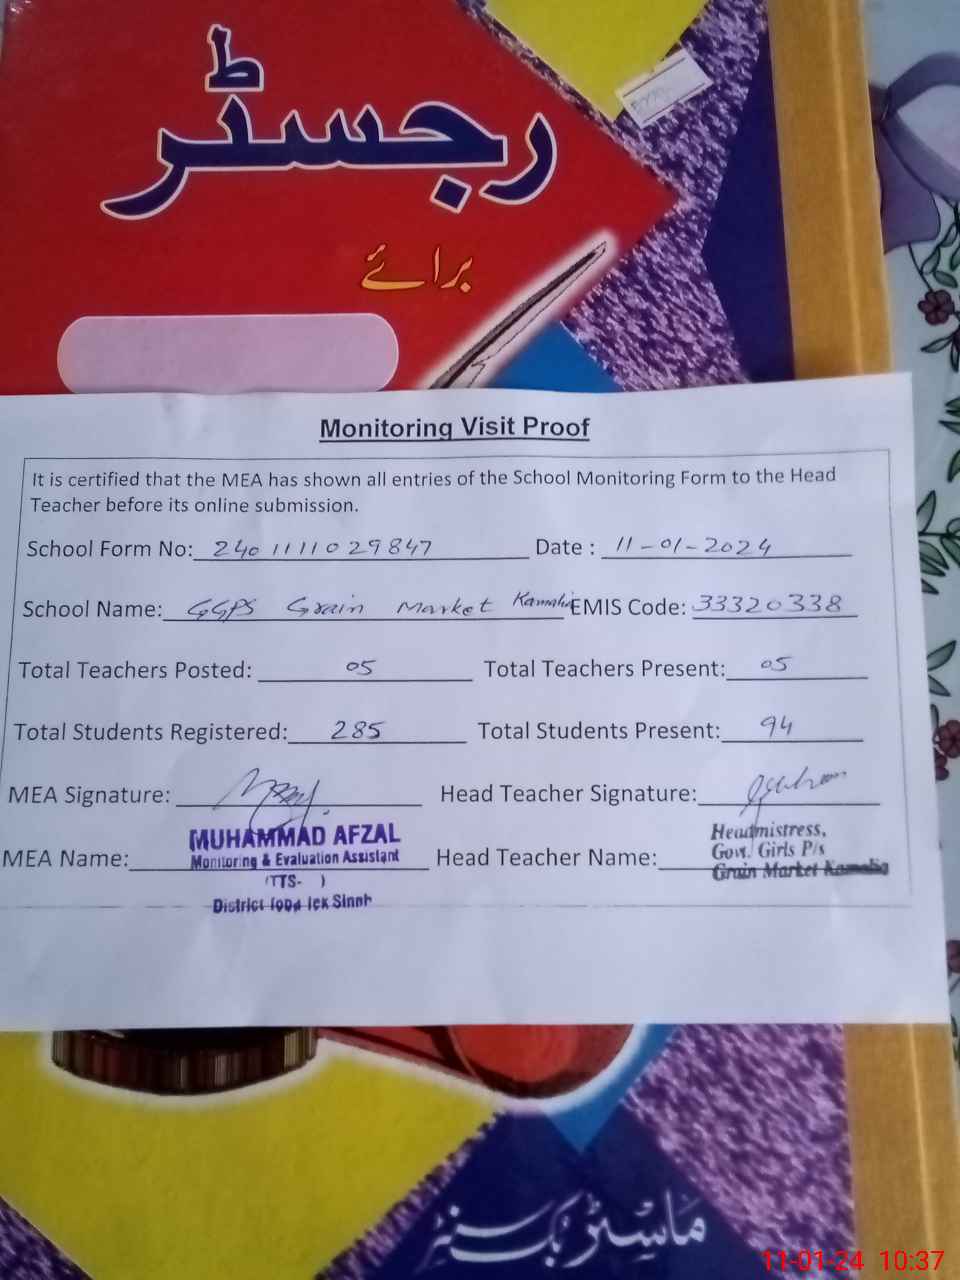 رجسٹر
برائے
Monitoring Visit Proof
It is certified that the MEA has shown all entries of the School Monitoring Form to the Head
Teacher before its online submission.
School Form No: 2401111029847 Date : 11-01-2024
School Name: GGPS Grain Market Kamalia EMIS Code: 33320338
Total Teachers Posted: 05 Total Teachers Present: 05
Total Students Registered: 285 Total Students Present: 94
MEA Signature: Head Teacher Signature:
MEA Name: MUHAMMAD AFZAL Head Teacher Name: Headmistress,
Monitoring & Evaluation Assistant Govt. Girls P/s
(TTS- ) Grain Market Kamalia
District Toba Tek Singh
ماسٹر بک سنٹر
11-01-24 10:37